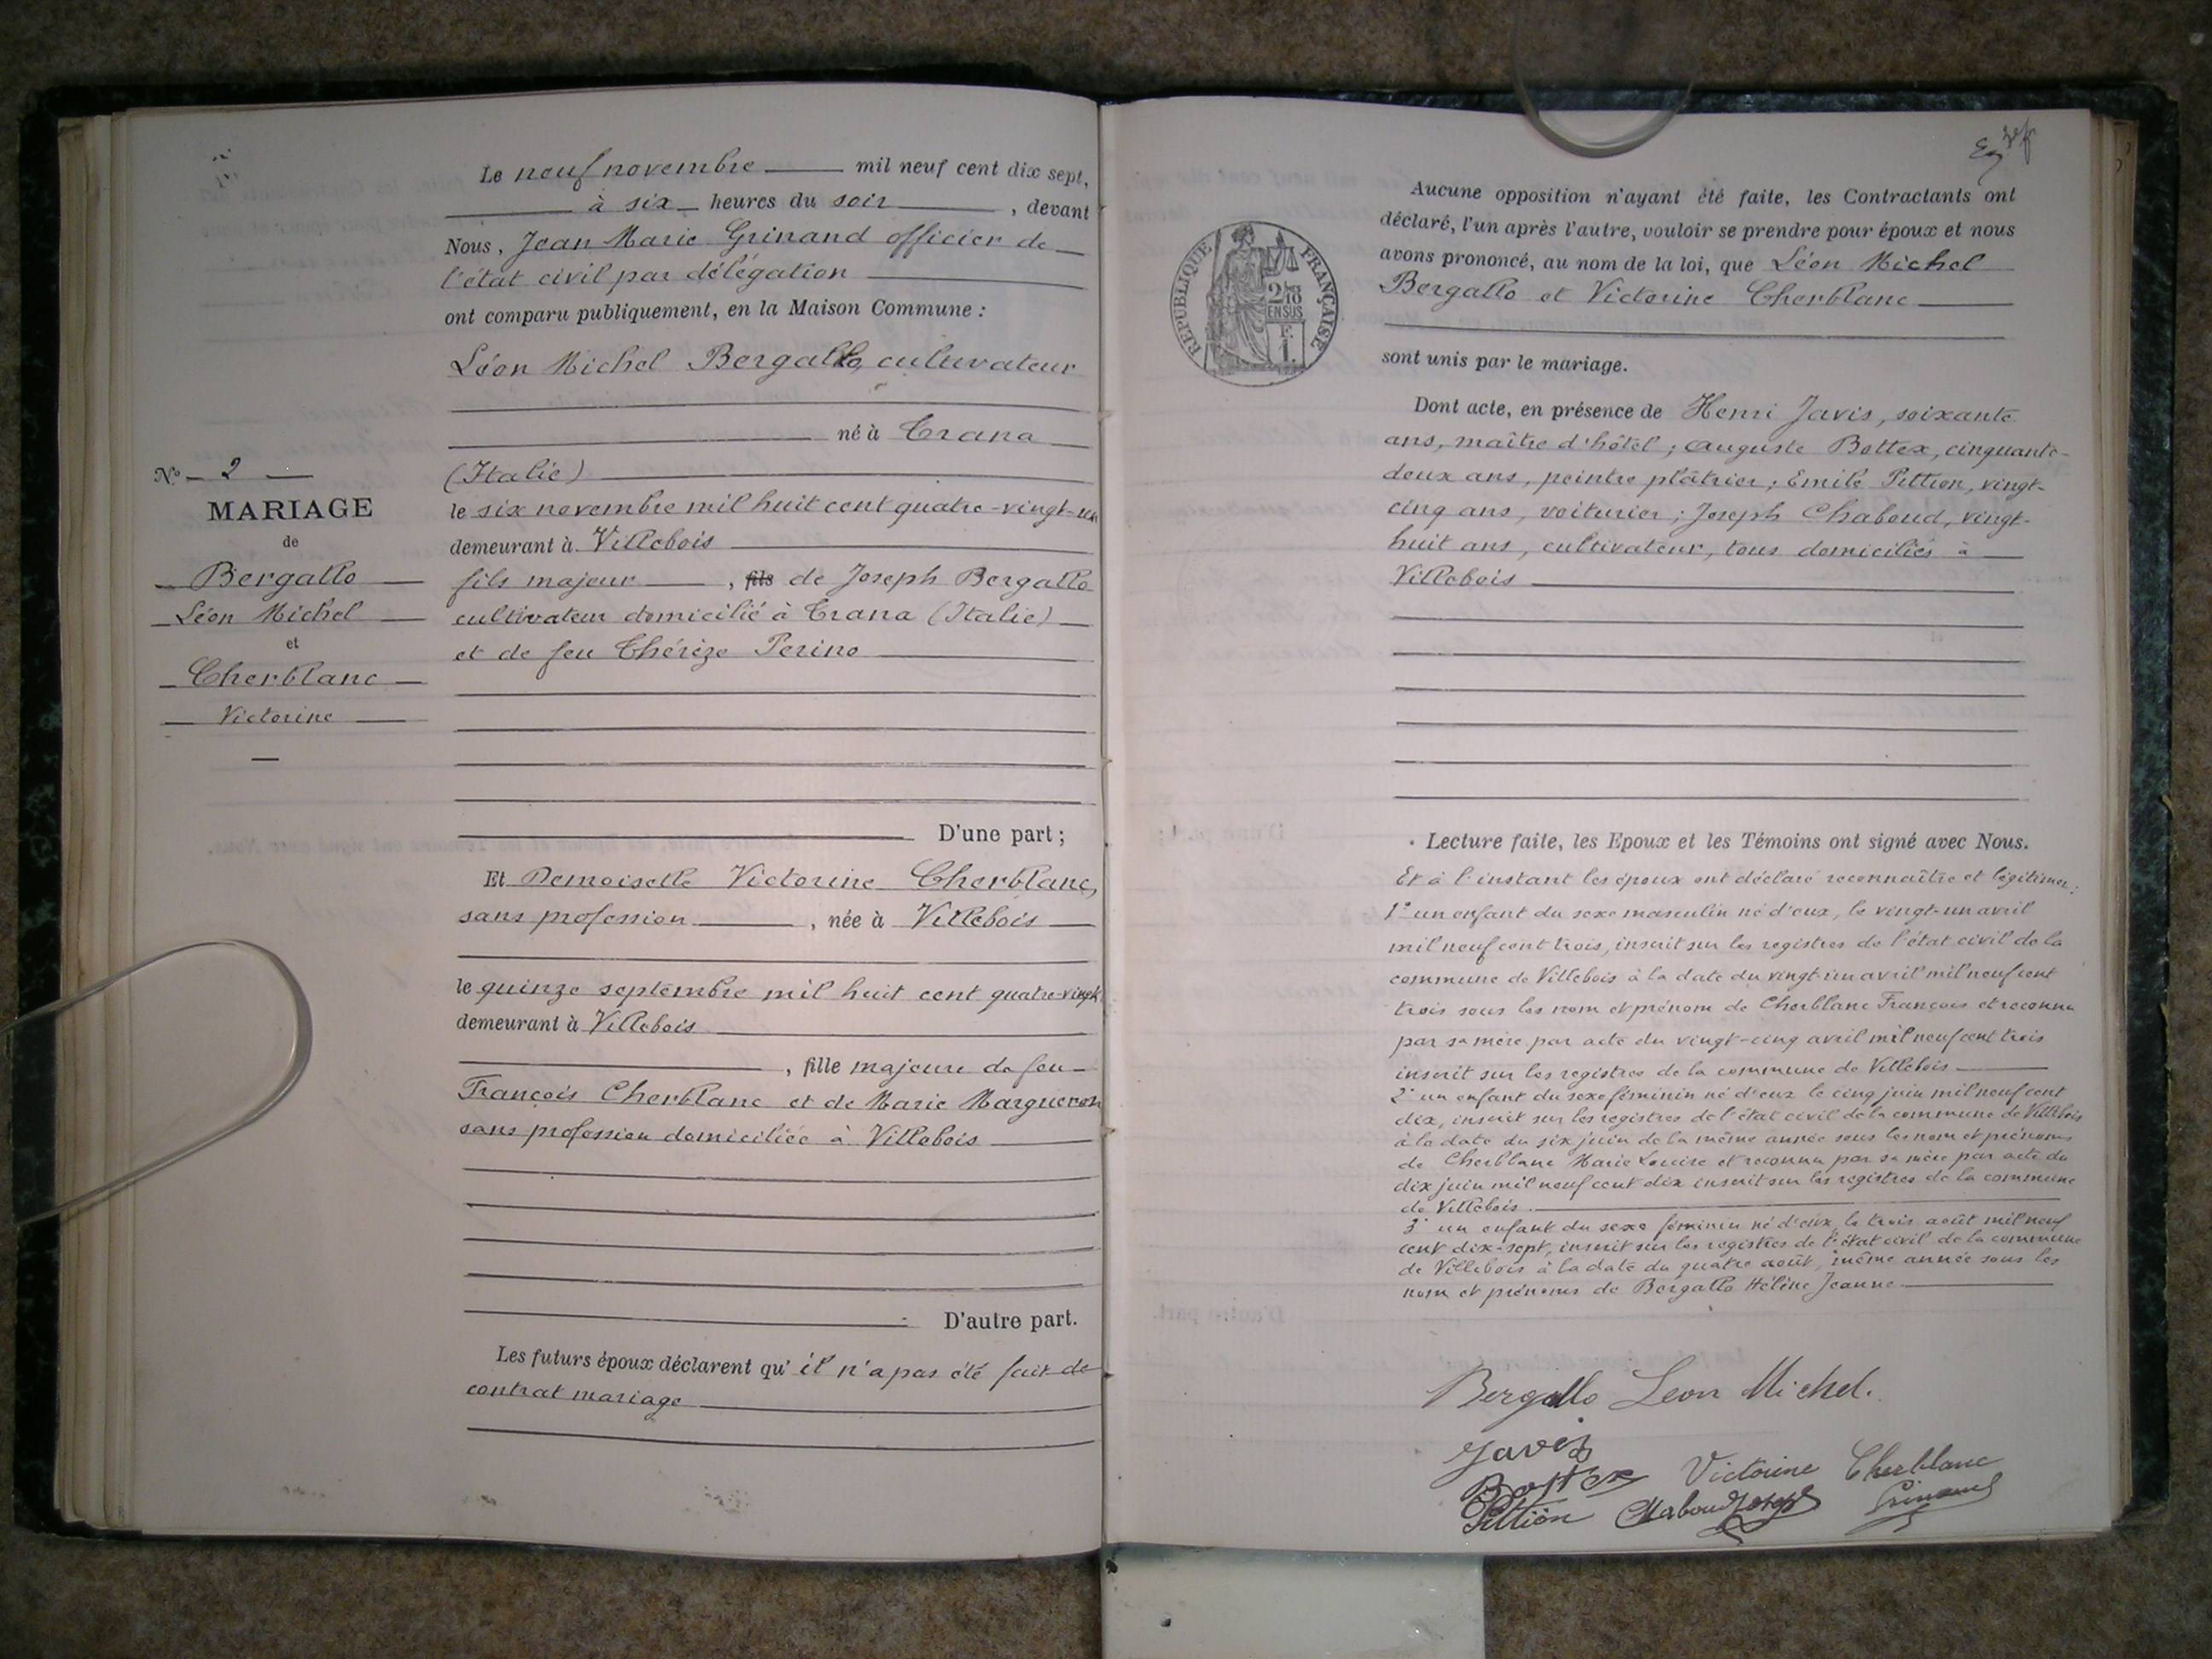 Le neuf novembre mil neuf cent dix sept,
à six heures du soir, devant
Nous, Jean Marie Grinand officier de
l'état civil par délégation
ont comparu publiquement, en la Maison Commune :
Léon Michel Bergallo, cultivateur
né à Trana
(Italie)
le six novembre mil huit cent quatre-vingt-un
demeurant à Villebois
fils majeur, fils de Joseph Bergallo
cultivateur domicilié à Trana (Italie)
et de feu Thérèze Perino
D'une part ;
Et Demoiselle Victorine Cherblanc,
sans profession, née à Villebois
le quinze septembre mil huit cent quatre-vingt
demeurant à Villebois
, fille majeure de feu
François Cherblanc et de Marie Margueron
sans profession domiciliée à Villebois
D'autre part.
Les futurs époux déclarent qu'il n'a pas été fait de
contrat mariage
N° 2
MARIAGE
de
Bergallo
Léon Michel
et
Cherblanc
Victorine
RÉPUBLIQUE FRANÇAISE
2/10
EN SUS
F.
1.
Aucune opposition n'ayant été faite, les Contractants ont
déclaré, l'un après l'autre, vouloir se prendre pour époux et nous
avons prononcé, au nom de la loi, que Léon Michel
Bergallo et Victorine Cherblanc
sont unis par le mariage.
Dont acte, en présence de Henri Javis, soixante
ans, maître d'hôtel ; Auguste Bottex, cinquante-
deux ans, peintre plâtrier ; Emile Pittion, vingt-
cinq ans, voiturier ; Joseph Chaboud, vingt-
huit ans, cultivateur, tous domiciliés à
Villebois
Lecture faite, les Epoux et les Témoins ont signé avec Nous.
Et à l'instant les époux ont déclaré reconnaître et légitimer :
1° un enfant du sexe masculin né d'eux, le vingt-un avril
mil neuf cent trois, inscrit sur les registres de l'état civil de la
commune de Villebois à la date du vingt-un avril mil neuf cent
trois sous les nom et prénom de Cherblanc François et reconnu
par sa mère par acte du vingt-cinq avril mil neuf cent trois
inscrit sur les registres de la commune de Villebois
2° un enfant du sexe féminin né d'eux le cinq juin mil neuf cent
dix, inscrit sur les registres de l'état civil de la commune de Villebois
à la date du six juin de la même année sous les nom et prénoms
de Cherblanc Marie Louise et reconnu par sa mère par acte du
dix juin mil neuf cent dix inscrit sur les registres de la commune
de Villebois.
3° un enfant du sexe féminin né d'eux, le trois août mil neuf
cent dix-sept, inscrit sur les registres de l'état civil de la commune
de Villebois à la date du quatre août, même année sous les
nom et prénoms de Bergallo Hélène Jeanne
Bergallo Leon Michel.
Javis
Bottex Victorine Cherblanc
Pittion Chaboud Joseph Grinand